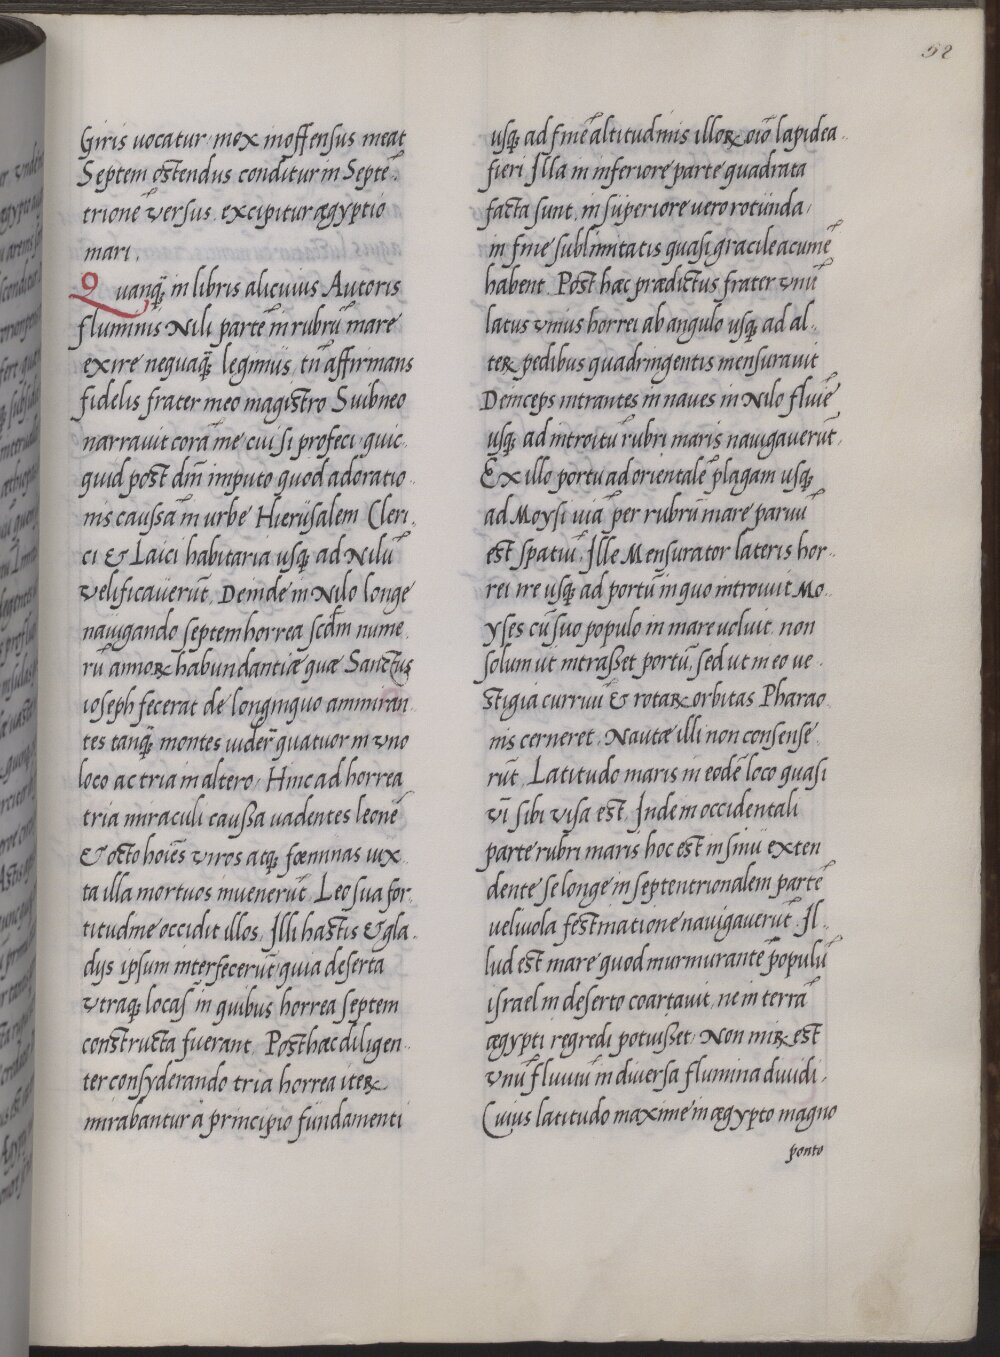 52
Giris uocatur, mox inoffensus meat
Septem ostendus conditur in Septē-
trionē versus, excipitur ægyptio
mari.
Quanq̃ in libris alicuius Autoris
fluminis Nili partē in rubrū mare
exire nequaq̃ legimus, tñ affirmans
fidelis frater meo magistro Suibneo
narrauit corā me cui si profeci quic-
quid post dm̄ imputo quod adoratio-
nis caussa in urbe Hierusalem Cleri-
ci & Laici habitaria usq; ad Nilū
velificauerūt. Deinde in Nilo longe
nauigando septem horrea scdm̄ nume-
rū annoꝝ habundantiæ quæ Sanctus
ioseph fecerat de longinquo ammiran-
tes tanq̃ montes uider̃ quatuor in vno
loco ac tria in altero. Hinc ad horrea
tria miraculi caussa uadentes leonē
& octo hoiēs viros atq; fœminas iux-
ta illa mortuos inuenerūt. Leo sua for-
titudine occidit illos, Illi hastis & gla-
dijs ipsum interfecerūt quia deserta
vtraq; locas in quibus horrea septem
constructa fuerant. Post hac diligen-
ter consyderando tria horrea iteꝝ
mirabantur a principio fundamenti
usq; ad finē altitudinis illoꝝ oīo lapidea
fieri. Illa in inferiore parte quadrata
facta sunt, in superiore uero rotunda,
in fine sublimitatis quasi gracile acumē
habent. Post hac prædictus frater vnū
latus vnius horrei ab angulo usq; ad al-
teꝝ pedibus quadringentis mensurauit
Deinceps intrantes in naues in Nilo fluiē
usq; ad introitū rubri maris nauigauerūt.
Ex illo portu ad orientalē plagam usq;
ad Moysi uiā per rubrū mare paruū
est spatiū. Ille Mensurator lateris hor-
rei ire usq; ad portū in quo introiuit Mo-
yses cū suo populo in mare uoluit, non
solum ut intrasset portū, sed ut in eo ue-
stigia curruū & rotaꝝ orbitas Pharao-
nis cerneret. Nautæ illi non consense-
rūt. Latitudo maris in eodē loco quasi
vī sibi visa est. Inde in occidentali
parte rubri maris hoc est in sinū exten
dente se longe in septentrionalem partē
ueliuola festinatione nauigauerūt. Il-
lud est mare quod murmurantē populū
israel in deserto coartauit, ne in terrā
ægypti regredi potuisset. Non miꝝ est
vnū fluuiū in diuersa flumina diuidi.
Cuius latitudo maxime in ægypto magno
ponto